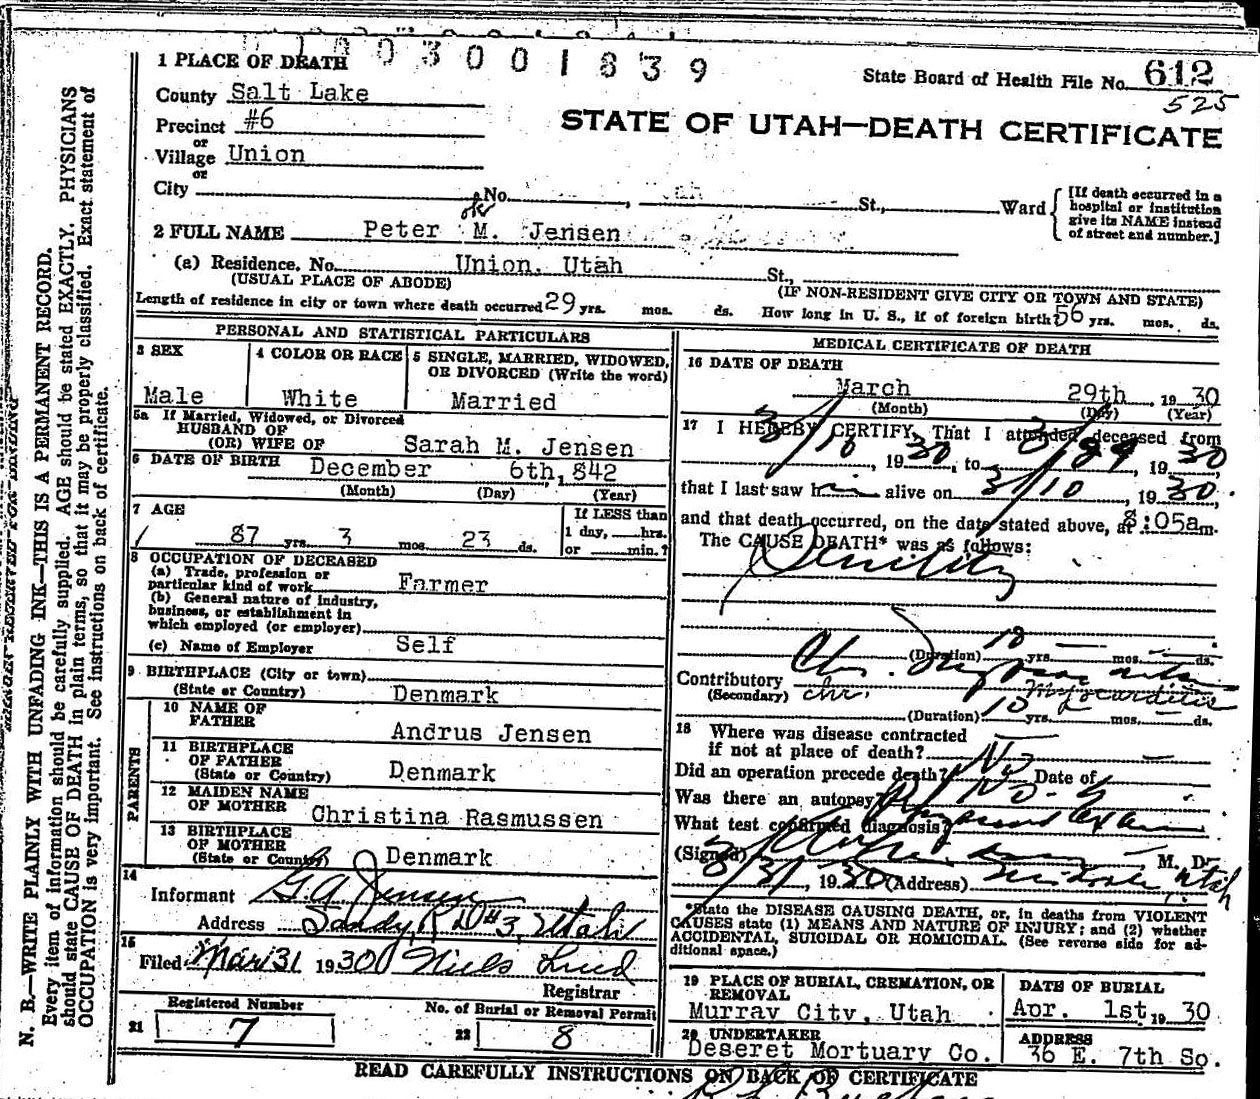 1003001839
1 PLACE OF DEATH
State Board of Health File No. 612
525
County Salt Lake
Precinct #6
STATE OF UTAH—DEATH CERTIFICATE
or
Village Union
or
City No. St., Ward [If death occurred in a hospital or institution give its NAME instead of street and number.]
ok
2 FULL NAME Peter M. Jensen
(a) Residence. No. Union. Utah St.,
(USUAL PLACE OF ABODE) (IF NON-RESIDENT GIVE CITY OR TOWN AND STATE)
Length of residence in city or town where death occurred 29 yrs. mos. ds. How long in U. S., if of foreign birth? 56 yrs. mos. ds.
PERSONAL AND STATISTICAL PARTICULARS
3 SEX
Male
4 COLOR OR RACE
White
5 SINGLE, MARRIED, WIDOWED,
OR DIVORCED (Write the word)
Married
5a If Married, Widowed, or Divorced
HUSBAND OF
(OR) WIFE OF Sarah M. Jensen
6 DATE OF BIRTH December 6th, 1842
(Month) (Day) (Year)
7 AGE
87 yrs. 3 mos. 23 ds.
If LESS than
1 day, hrs.
or min.?
8 OCCUPATION OF DECEASED
(a) Trade, profession or
particular kind of work Farmer
(b) General nature of industry,
business, or establishment in
which employed (or employer)
(c) Name of Employer Self
9 BIRTHPLACE (City or town)
(State or Country) Denmark
PARENTS
10 NAME OF
FATHER Andrus Jensen
11 BIRTHPLACE
OF FATHER
(State or Country) Denmark
12 MAIDEN NAME
OF MOTHER Christina Rasmussen
13 BIRTHPLACE
OF MOTHER
(State or Country) Denmark
14
Informant G. A. Jensen
Address Sandy, R D #3, Utah
15
Filed Mar 31 1930 Niels Lind
Registrar
Registered Number
21 7
No. of Burial or Removal Permit
22 8
MEDICAL CERTIFICATE OF DEATH
16 DATE OF DEATH
March 29th, 1930
(Month) (Day) (Year)
17 I HEREBY CERTIFY, That I attended deceased from
3/10, 1930, to 3/29, 1930
that I last saw him alive on 3/10, 1930.
and that death occurred, on the date stated above, at 8:05a m.
The CAUSE DEATH* was as follows:
Senility
(Duration) 10 yrs. mos. ds.
Contributory Chr.
(Secondary) chr. Myocarditis
(Duration) 10 yrs. mos. ds.
18 Where was disease contracted
if not at place of death?
Did an operation precede death? No Date of
Was there an autopsy? No
What test confirmed diagnosis? Physical Exam
(Signed) M. D.
3/31, 1930 (Address) Midvale Utah
*State the DISEASE CAUSING DEATH, or, in deaths from VIOLENT
CAUSES state (1) MEANS AND NATURE OF INJURY; and (2) whether
ACCIDENTAL, SUICIDAL OR HOMICIDAL. (See reverse side for ad-
ditional space.)
19 PLACE OF BURIAL, CREMATION, OR
REMOVAL
Murray City, Utah
DATE OF BURIAL
Apr. 1st, 1930
20 UNDERTAKER
Deseret Mortuary Co.
ADDRESS
36 E. 7th So.
READ CAREFULLY INSTRUCTIONS ON BACK OF CERTIFICATE
MARGIN RESERVED FOR BINDING
N. B.—WRITE PLAINLY WITH UNFADING INK—THIS IS A PERMANENT RECORD.
Every item of information should be carefully supplied. AGE should be stated EXACTLY. PHYSICIANS
should state CAUSE OF DEATH in plain terms, so that it may be properly classified. Exact statement of
OCCUPATION is very important. See instructions on back of certificate.